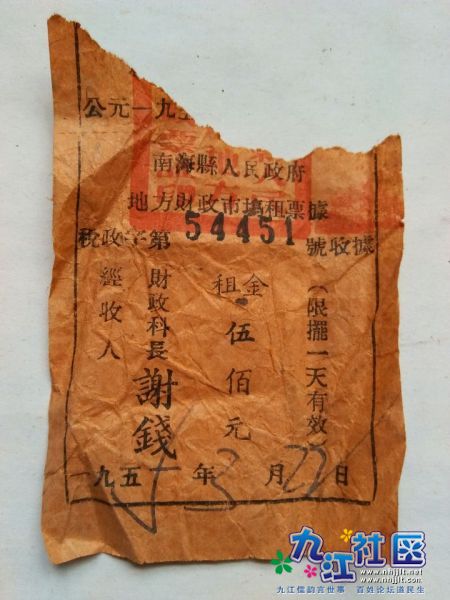 公元一九五
南海縣人民政府
地方財政市場租票據
稅政字第54451號收據
(限擺一天有效)
租金
伍佰元
財政科長 謝錢
經收人
一九五 年3月22日
九江社区
www.nhjjlt.net
www.nhjjlt.com
九江儒韵言世事 百姓论坛道民生